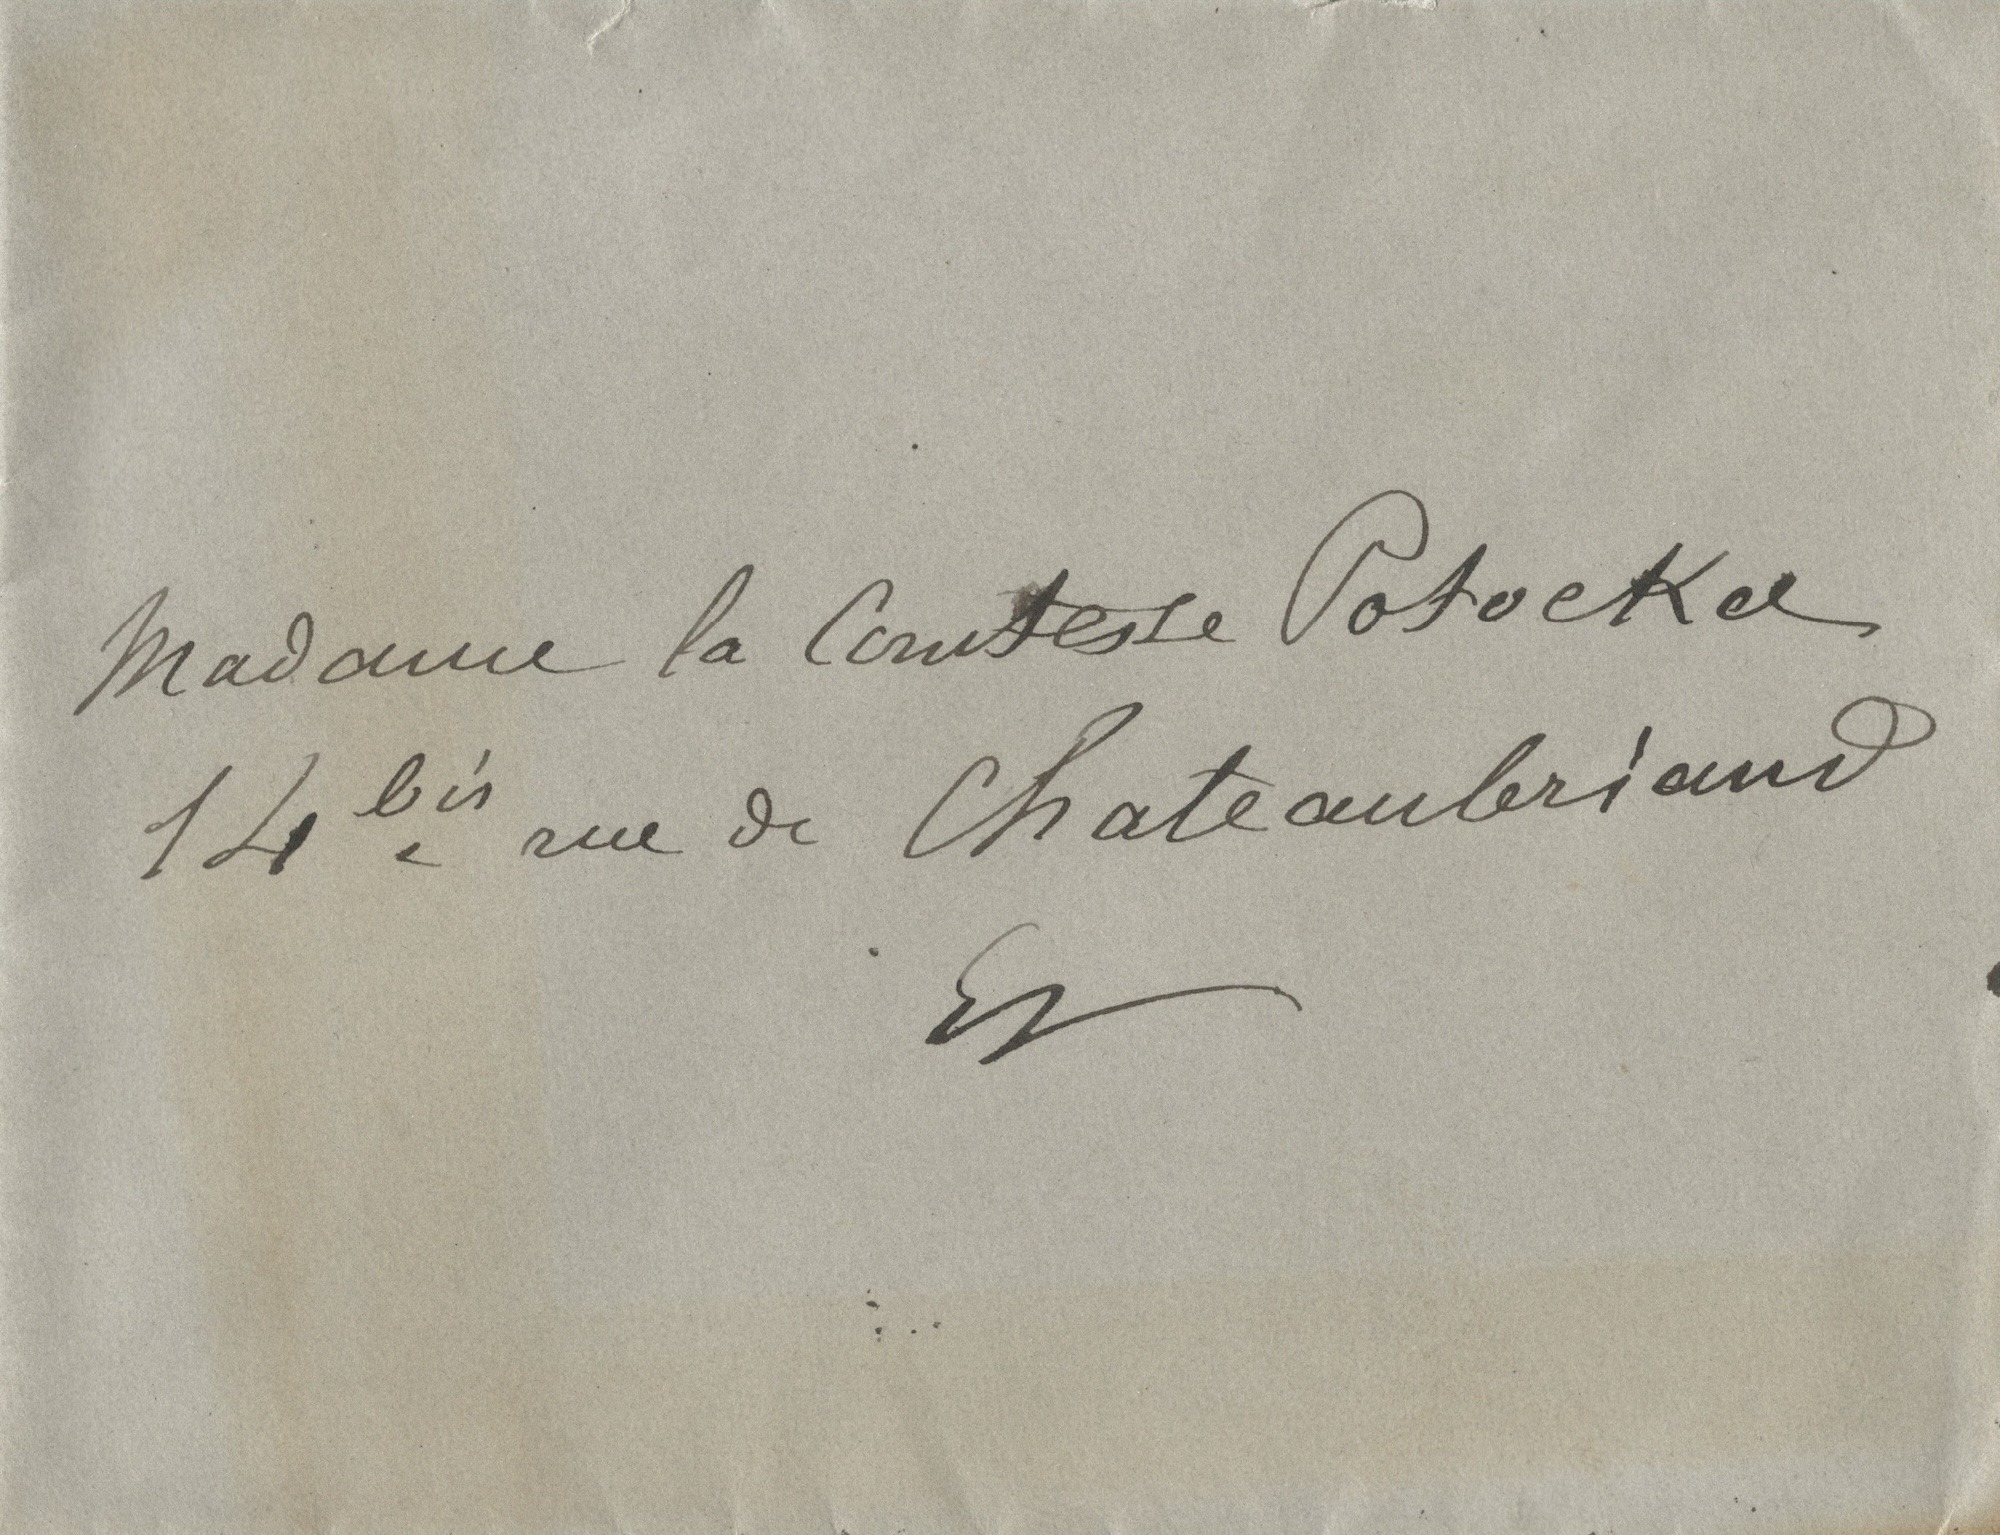 Madame la Comtesse Potocka
14 bis rue de Chateaubriand